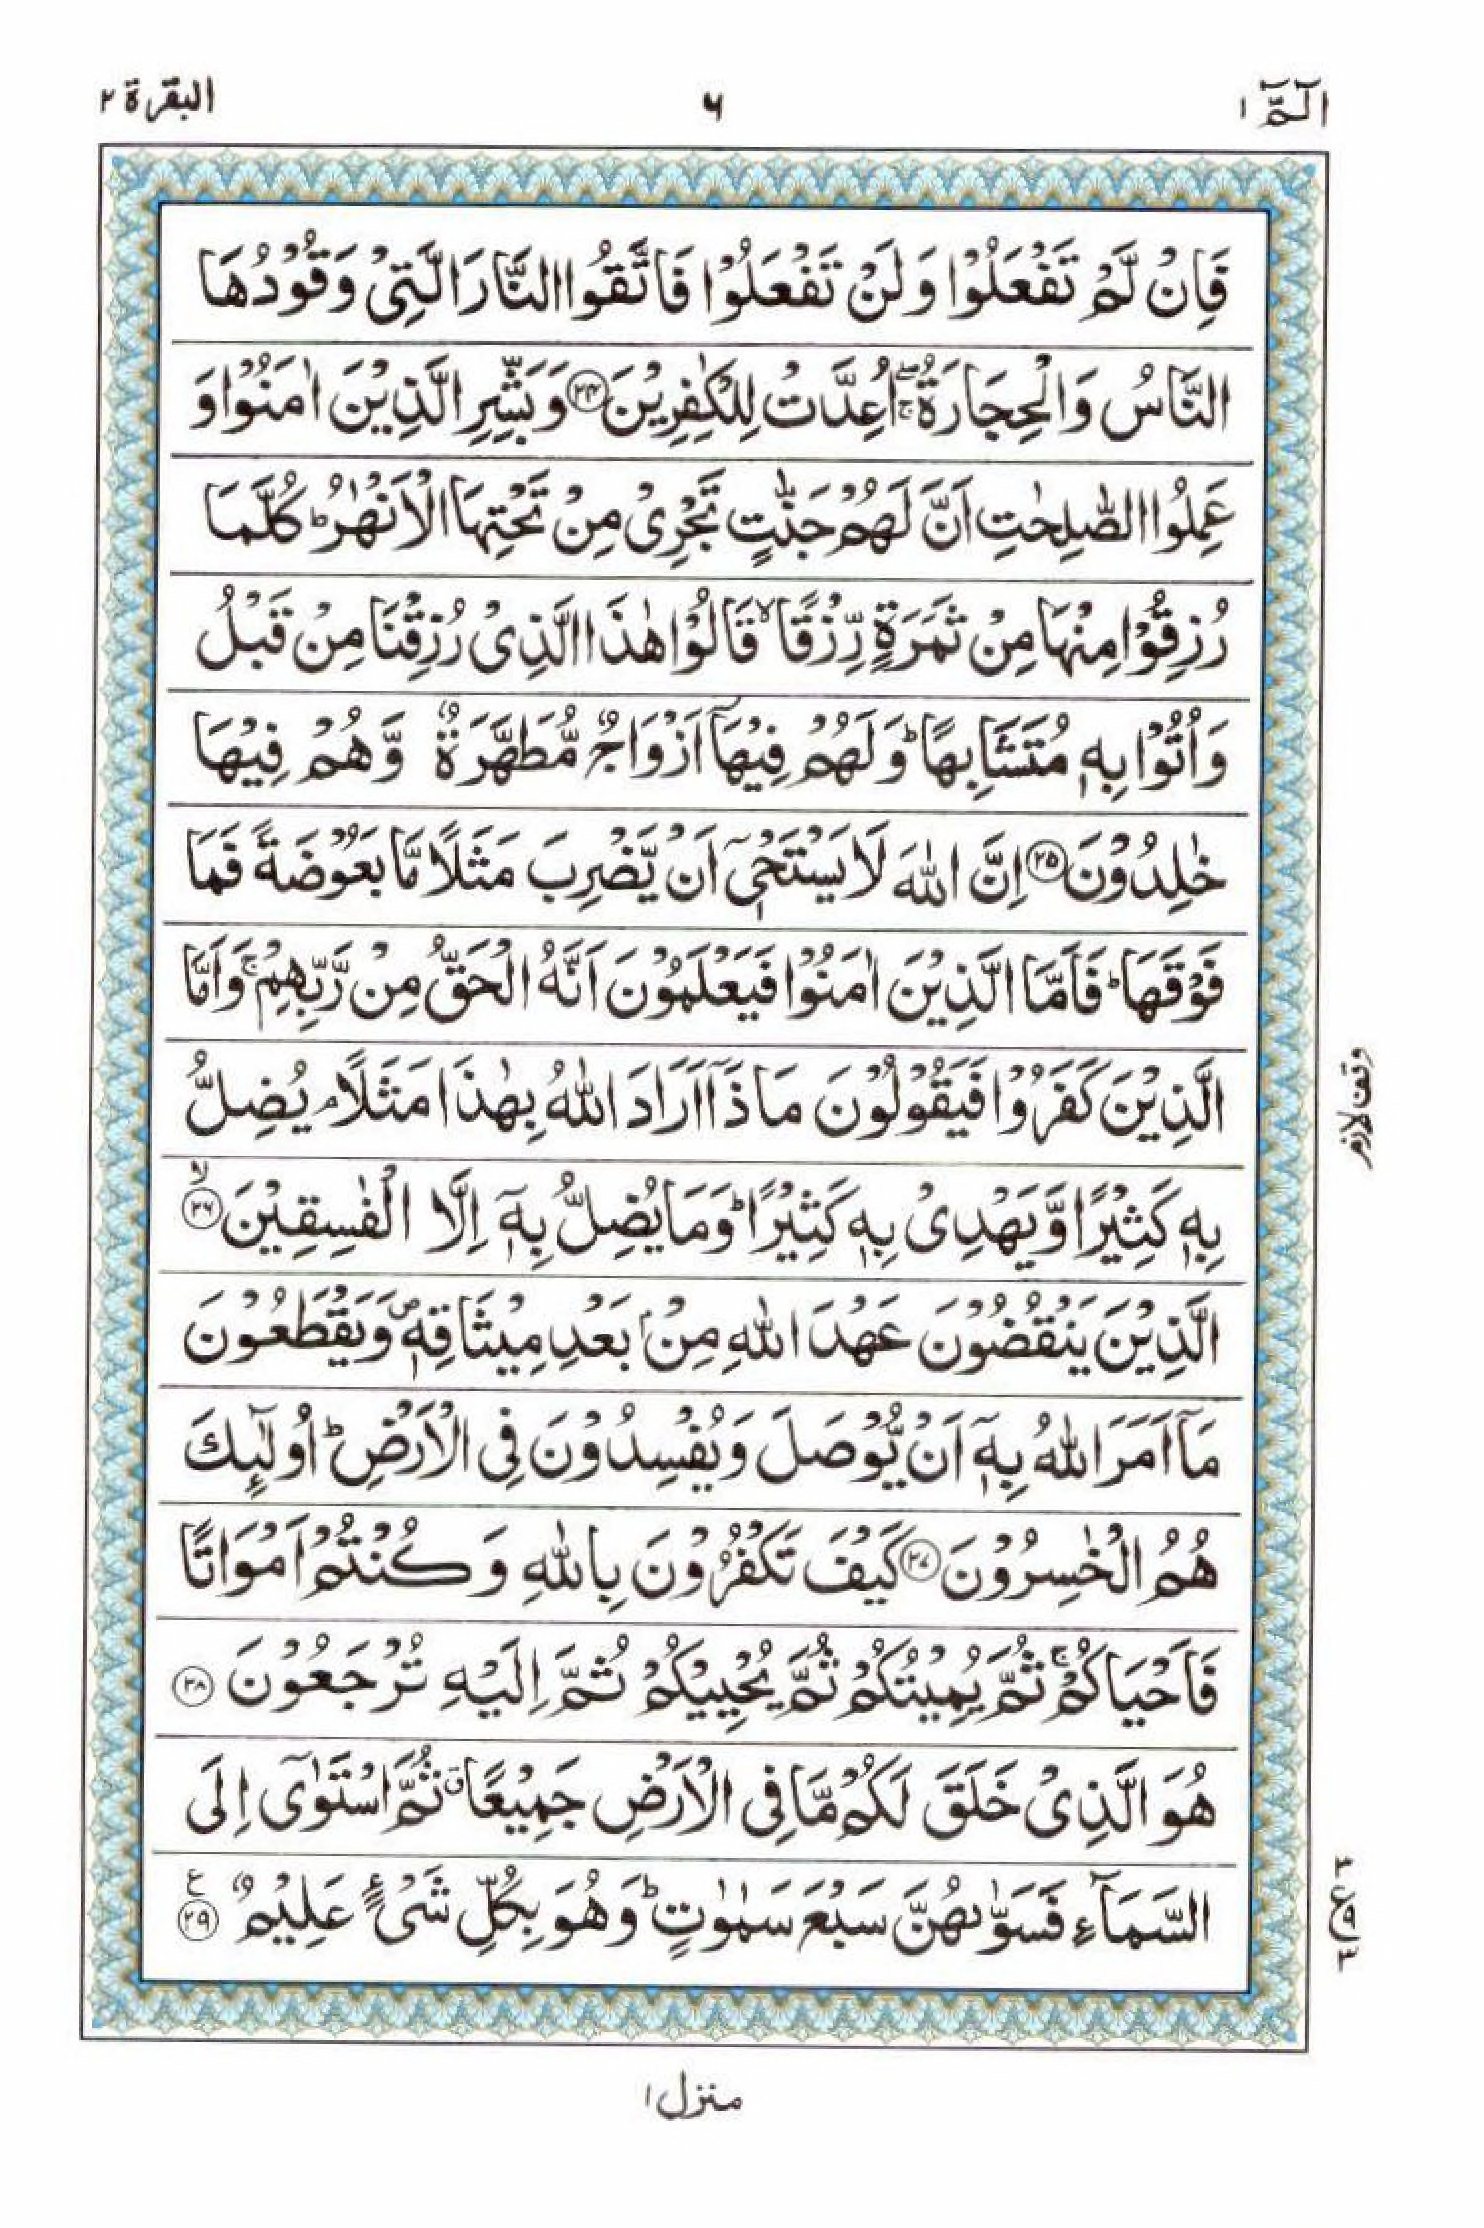 الٓمّٓ ١ ٦ البقرة ٢
فَاِنْ لَّمْ تَفْعَلُوْا وَلَنْ تَفْعَلُوْا فَاتَّقُوا النَّارَ الَّتِيْ وَقُوْدُهَا
النَّاسُ وَالْحِجَارَةُ ۖۚ اُعِدَّتْ لِلْكٰفِرِيْنَ ﴿۲۴﴾ وَبَشِّرِ الَّذِيْنَ اٰمَنُوْا وَ
عَمِلُوا الصّٰلِحٰتِ اَنَّ لَهُمْ جَنّٰتٍ تَجْرِيْ مِنْ تَحْتِهَا الْاَنْهٰرُ ؕ كُلَّمَا
رُزِقُوْا مِنْهَا مِنْ ثَمَرَةٍ رِّزْقًا ۙ قَالُوْا هٰذَا الَّذِيْ رُزِقْنَا مِنْ قَبْلُ
وَاُتُوْا بِهٖ مُتَشَابِهًا ؕ وَلَهُمْ فِيْهَاۤ اَزْوَاجٌ مُّطَهَّرَةٌ وَّهُمْ فِيْهَا
خٰلِدُوْنَ ﴿۲۵﴾ اِنَّ اللّٰهَ لَا يَسْتَحْيٖۤ اَنْ يَّضْرِبَ مَثَلًا مَّا بَعُوْضَةً فَمَا
فَوْقَهَا ؕ فَاَمَّا الَّذِيْنَ اٰمَنُوْا فَيَعْلَمُوْنَ اَنَّهُ الْحَقُّ مِنْ رَّبِّهِمْ ۚ وَاَمَّا
الَّذِيْنَ كَفَرُوْا فَيَقُوْلُوْنَ مَاذَاۤ اَرَادَ اللّٰهُ بِهٰذَا مَثَلًا ۘ يُضِلُّ
بِهٖ كَثِيْرًا وَّيَهْدِيْ بِهٖ كَثِيْرًا ؕ وَمَا يُضِلُّ بِهٖۤ اِلَّا الْفٰسِقِيْنَ ۙ ﴿۲۶﴾
الَّذِيْنَ يَنْقُضُوْنَ عَهْدَ اللّٰهِ مِنْۢ بَعْدِ مِيْثَاقِهٖ ۪ وَيَقْطَعُوْنَ
مَاۤ اَمَرَ اللّٰهُ بِهٖۤ اَنْ يُّوْصَلَ وَيُفْسِدُوْنَ فِي الْاَرْضِ ؕ اُولٰٓئِكَ
هُمُ الْخٰسِرُوْنَ ﴿۲۷﴾ كَيْفَ تَكْفُرُوْنَ بِاللّٰهِ وَكُنْتُمْ اَمْوَاتًا
فَاَحْيَاكُمْ ۚ ثُمَّ يُمِيْتُكُمْ ثُمَّ يُحْيِيْكُمْ ثُمَّ اِلَيْهِ تُرْجَعُوْنَ ﴿۲۸﴾
هُوَ الَّذِيْ خَلَقَ لَكُمْ مَّا فِي الْاَرْضِ جَمِيْعًا ۗ ثُمَّ اسْتَوٰۤى اِلَى
السَّمَآءِ فَسَوّٰىهُنَّ سَبْعَ سَمٰوٰتٍ ؕ وَهُوَ بِكُلِّ شَيْءٍ عَلِيْمٌ ﴿۲۹﴾ ع
وقف لازم
٣ ع ٩ ٣
منزل ١